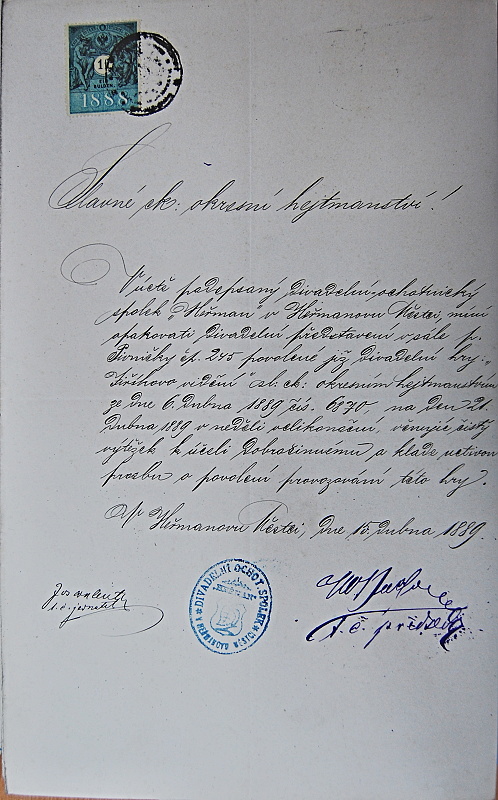 1
GULDEN
1888
Slavné ck: okresní hejtmanství!
V úctě podepsaný divadelní-ochotnický
spolek „Heřman" v Heřmanovu Městci, míní
opakovati divadelní představení v sále p.
Pivničky čp. 245 povolené již divadelní hry:
"Jiříkovo vidění" sl: ck: okresním hejtmanstvím
ze dne 6. dubna 1889 čís. 6870, na den 21.
dubna 1889 v neděli velikonoční, věnujíc čistý
výtěžek k účeli dobročinnému a klade uctivou
prosbu o povolení provozování této hry.
V Heřmanovu Městci, dne 15. dubna 1889.
t. č. jednatel
DIVADELNÍ OCHOT. SPOLEK
HEŘMAN
V HEŘMANOVU MĚSTCI
t. č. předseda